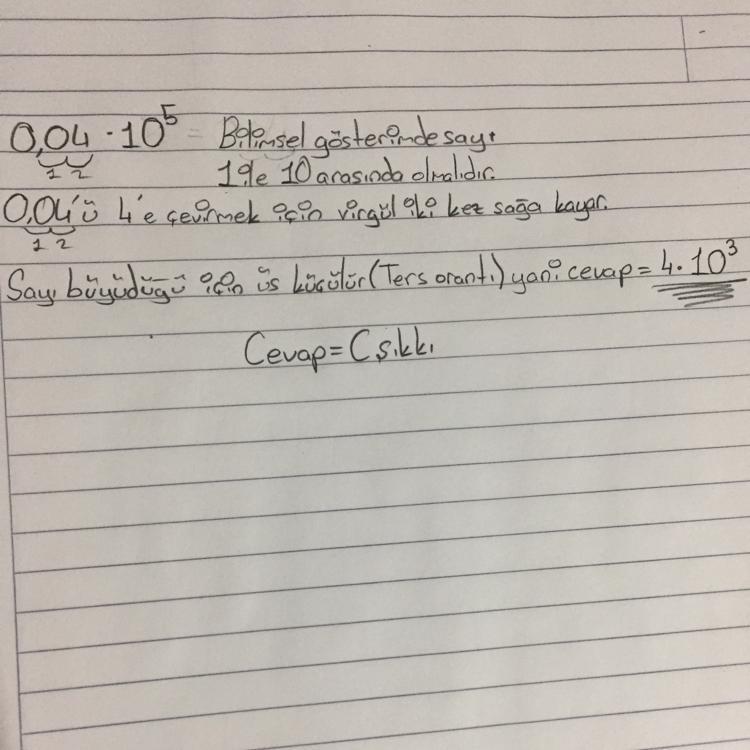 0,04 · 10⁵ = Bilimsel gösterimde sayı
1 2 1 ile 10 arasında olmalıdır.
0,04'ü 4'e çevirmek için virgül iki kez sağa kayar.
1 2
Sayı büyüdüğü için üs küçülür (Ters orantı) yani cevap = 4 · 10³
Cevap = C şıkkı